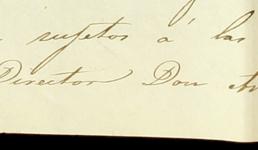 sujetos á las
Director Don An